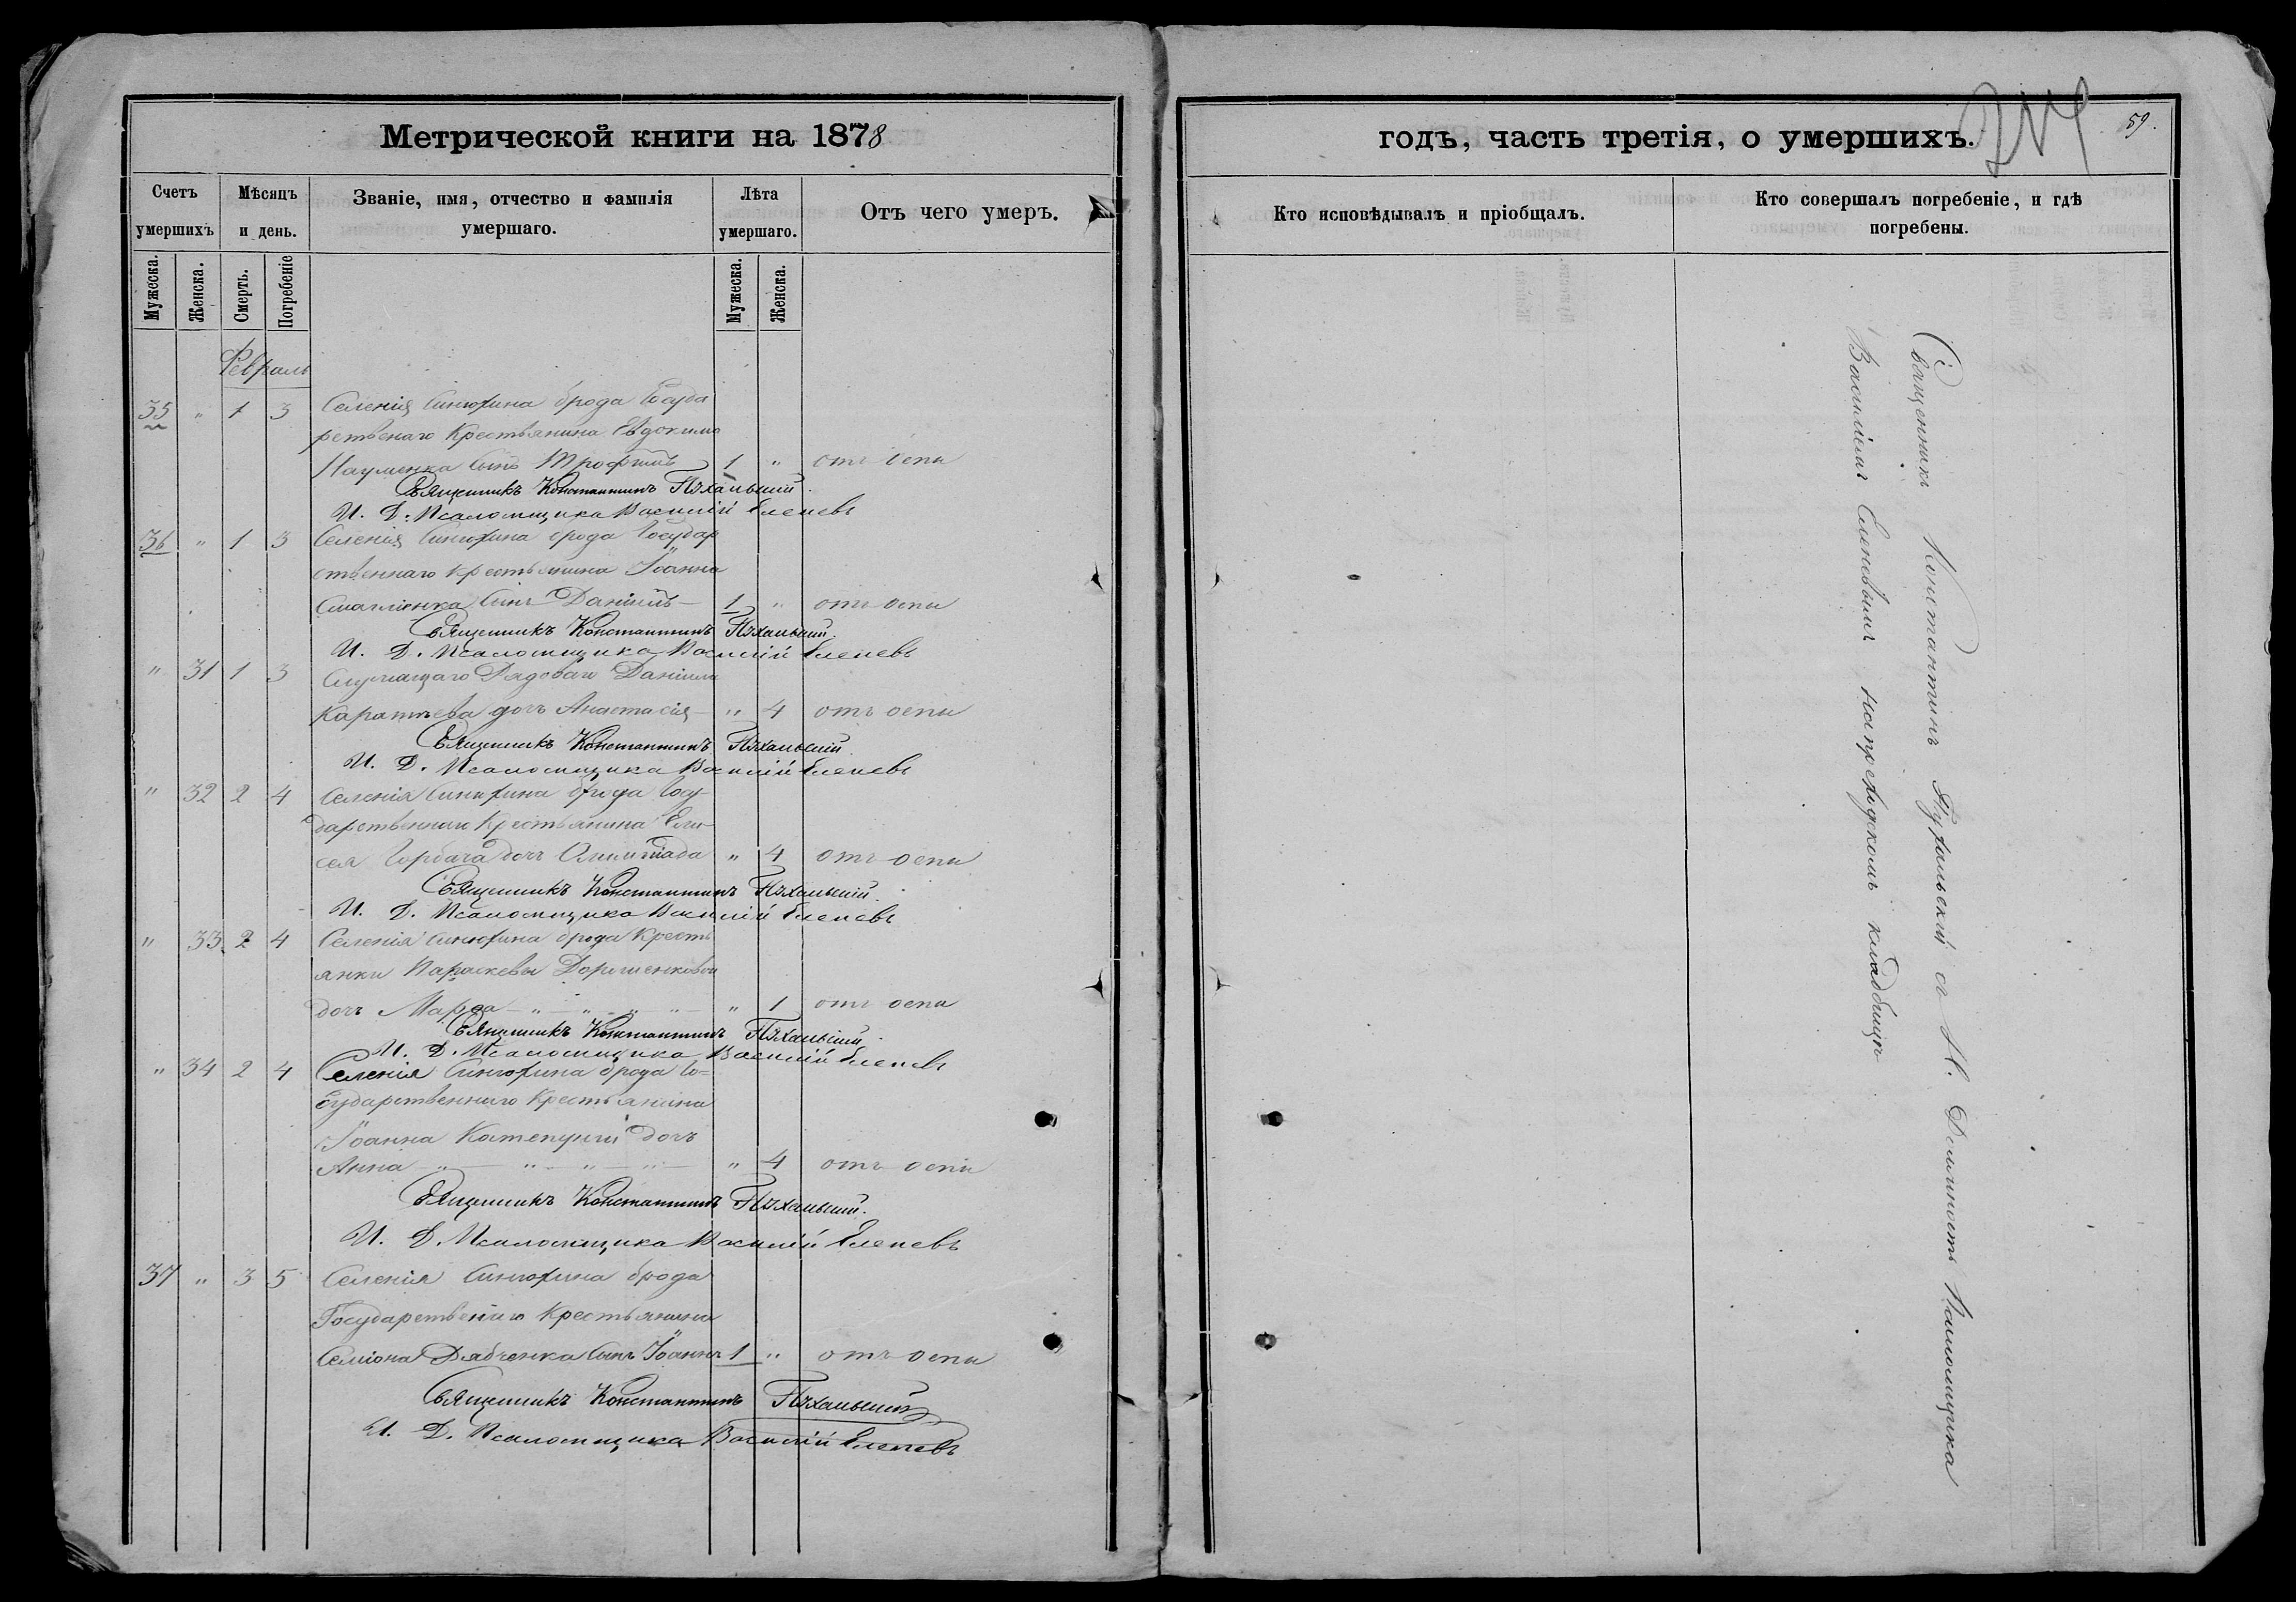 Метрической книги на 1878
Счетъ умершихъ
Мѣсяцъ и день.
Званіе, имя, отчество и фамилія умершаго.
Лѣта умершаго.
Отъ чего умеръ.
Мужеска.
Женска.
Смерть.
Погребеніе
Мужеска.
Женска.
Февраль
35 " 1 3 Селенія Синюхина брода Госуда
рственаго Крестьянина Евдокима
Науменка сынъ Трофимъ 1 " отъ оспы
Священникъ Константинъ
И. Д. Псаломщика Василій Слепевъ
36 " 1 3 Селенія Синюхина брода Государ
ственнаго крестьянина Іоанна
сынъ Даніилъ 1 " отъ оспы
Священникъ Константинъ
И. Д. Псаломщика Василій Слепевъ
" 31 1 3 Служащаго Рядоваго Даніила
дочь Анастасія " 4 отъ оспы
Священникъ Константинъ
И. Д. Псаломщика Василій Слепевъ
" 32 2 4 Селенія Синюхина брода Госу-
дарственнаго Крестьянина Ели-
сея Горбача дочь Олимпіада " 4 отъ оспы
Священникъ Константинъ
И. Д. Псаломщика Василій Слепевъ
" 33 2 4 Селенія Синюхина брода Кресть
янки Параскевы Дорошенковой
дочь Марфа " " " " " 1 отъ оспы
Священникъ Константинъ
И. Д. Псаломщика Василій Слепевъ
" 34 2 4 Селенія Синюхина брода Го=
сударственнаго Крестьянина
Іоанна дочь
Анна " " " " " 4 отъ оспы
Священникъ Константинъ
И. Д. Псаломщика Василій Слепевъ
37 " 3 5 Селенія Синюхина брода
Государственаго Крестьянина
Семіона Дябченка сынъ Іоаннъ 1 " отъ оспы
Священникъ Константинъ
И. Д. Псаломщика Василій Слепевъ
годъ, часть третія, о умершихъ.
59.
Кто исповѣдывалъ и пріобщалъ.
Кто совершалъ погребеніе, и гдѣ погребены.
Священникъ Константинъ съ И. Должность Псаломщика
Василіемъ Слепевымъ на приходскомъ кладбищѣ